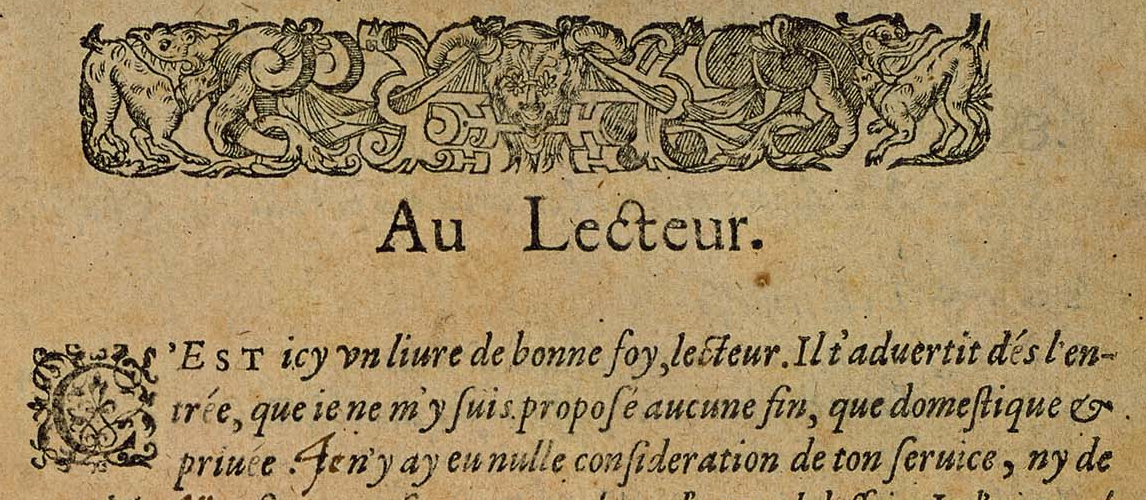 Au Lecteur.
C'EST icy vn liure de bonne foy, lecteur. Il t'aduertit dés l'en-
trée, que ie ne m'y suis proposé aucune fin, que domestique &
priuée. Ie n'y ay eu nulle consideration de ton seruice, ny de